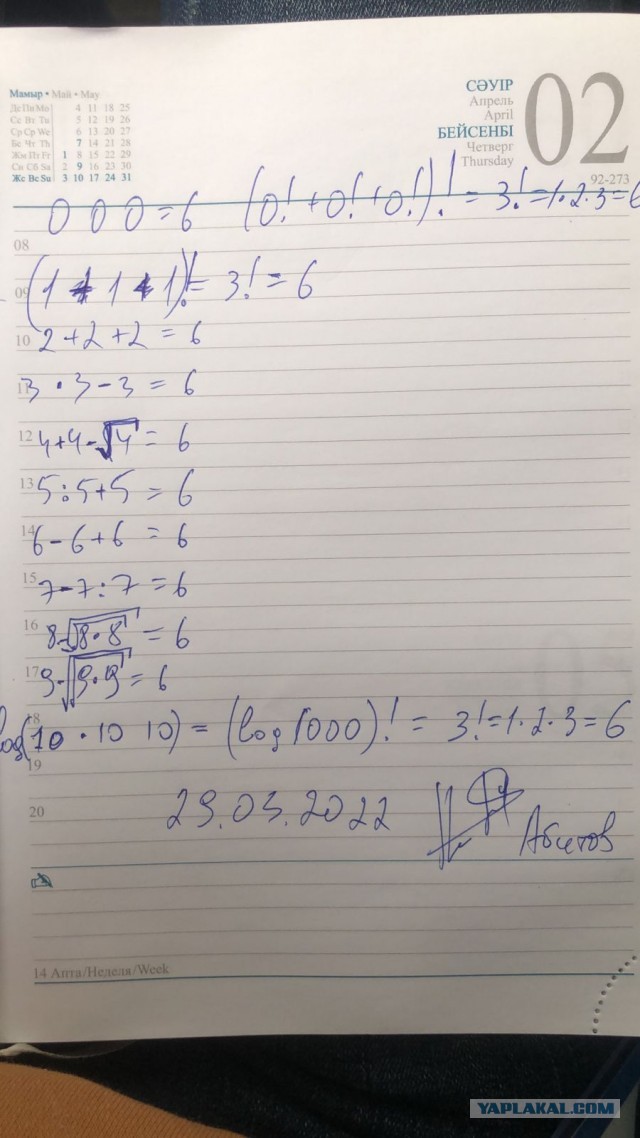 Мамыр • Май • May
Дс Пн Mo 4 11 18 25
Сс Вт Tu 5 12 19 26
Ср Ср We 6 13 20 27
Бс Чт Th 7 14 21 28
Жм Пт Fr 1 8 15 22 29
Сн Сб Sa 2 9 16 23 30
Жс Вс Su 3 10 17 24 31
СӘУІР
Апрель
April
БЕЙСЕНБІ
Четверг
Thursday
02
92-273
0 0 0 = 6 (0! + 0! + 0!)! = 3! = 1·2·3 = 6
08
09 (1 + 1 + 1)! = 3! = 6
10 2 + 2 + 2 = 6
11 3 · 3 - 3 = 6
12 4 + 4 - √4 = 6
13 5 : 5 + 5 = 6
14 6 - 6 + 6 = 6
15 7 - 7 : 7 = 6
16 8 √8·8 = 6
17 9 - √9·9 = 6
18 log(10 · 10 10) = (log 1000)! = 3! = 1·2·3 = 6
19
20 29.03.2022
14 Апта/Неделя/Week
YAPLAKAL.COM